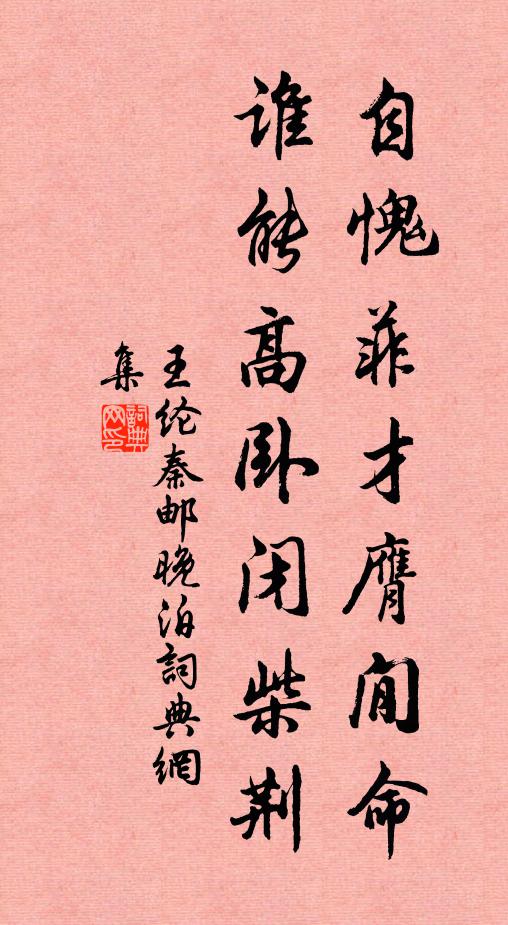 自愧菲才膺间命
谁能高卧闭柴荆
王纶秦邮晚泊詞典網
集
詞典网印